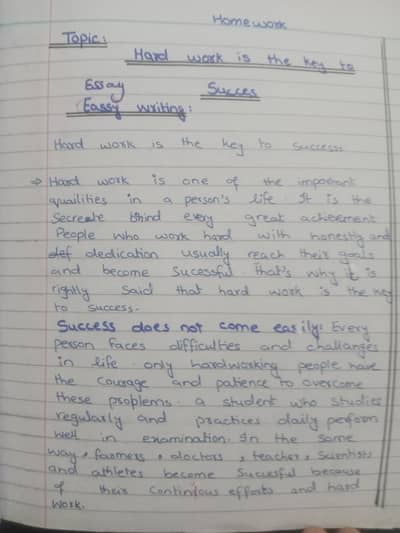 Homework
Topic:
Hard work is the key to
Succes
Essay
Eassy writing:
Hard work is the key to success
→ Hard work is one of the important
quailities in a person's life. It is the
Secreate bhind every great achievement
People who work hard with honestly and
def dedication usually reach their goals
and become Sucessful. That's why it is
rightly said that hard work is the key
to success.
Success does not come easily: Every
person faces difficulties and challanges
in life. only hardworking people have
the courage and patience to overcome
these problems. a student who studies
regularly and practices daily perform
well in examination. In the same
way, farmers, doctors, teacher, Scientists
and athletes become Succesful because
of their continious efforts and hard
work.